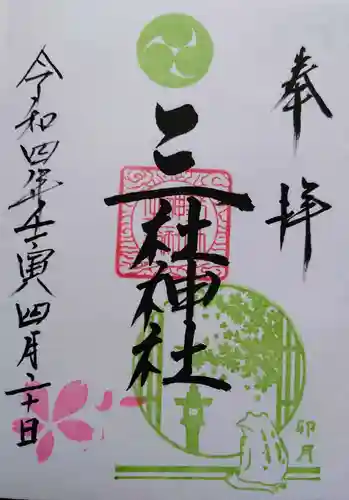 奉拝
三社神社
卯月
令和四年壬寅四月二十日